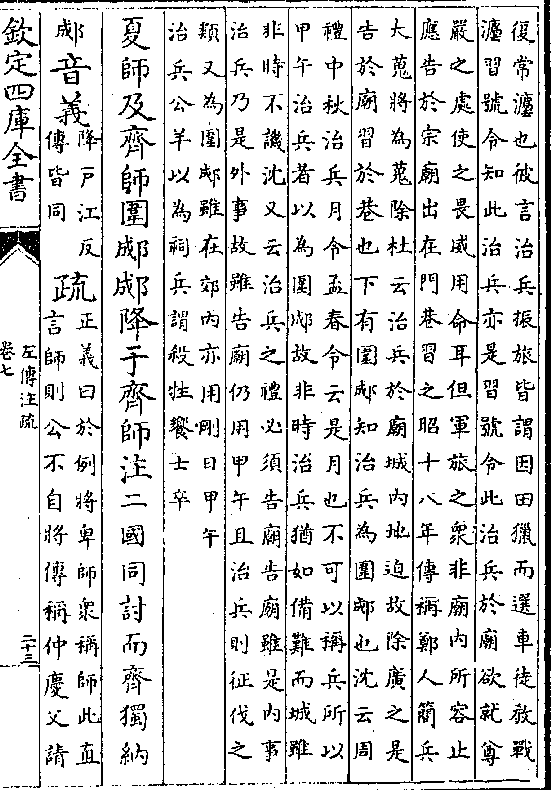 復常灋也彼言治兵振旅皆謂因田獵而選車徒教戰
灋習號令知此治兵亦是習號令此治兵於廟欲就尊
嚴之處使之畏威用命耳但軍旅之衆非廟內所容止
應告於宗廟出在門巷習之昭十八年傳稱鄭人簡兵
大蒐將為蒐除杜云治兵於廟城內地迫故除廣之是
告於廟習於巷也下有圍郕知治兵為圍郕也沈云周
禮中秋治兵月令孟春令云是月也不可以稱兵所以
甲午治兵者以為圍郕故非時治兵猶如備難而城雖
非時不譏沈又云治兵之禮必須告廟告廟雖是內事
治兵乃是外事故雖告廟仍用甲午且治兵則征伐之
類又為圍郕雖在郊內亦用剛日甲午
治兵公羊以為祠兵謂殺牲饗士卒
夏師及齊師圍郕郕降于齊師注二國同討而齊獨納
郕音義
降戶江反
傳皆同
疏
正義曰於例將卑師衆稱師此直
言師則公不自將傳稱仲慶父請
欽定四庫全書
左傳注疏
卷七
二十三